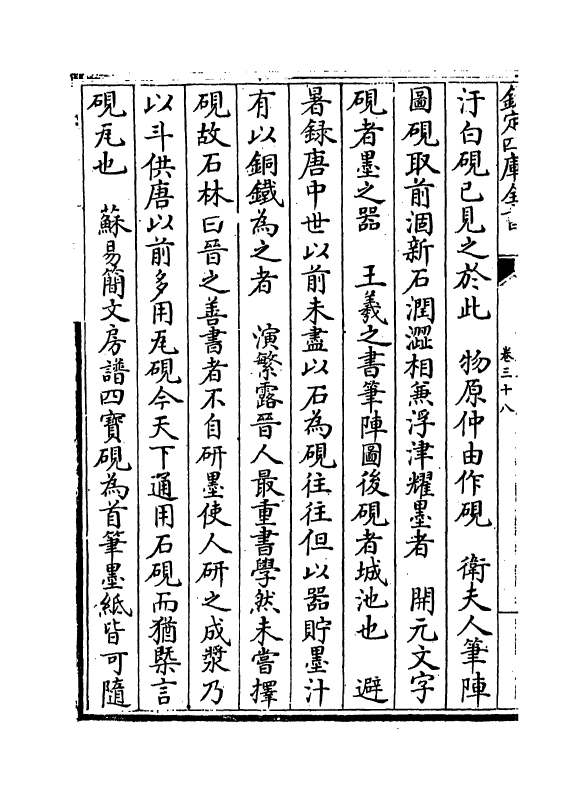 欽定四庫全書
卷三十八
汙白硯已見之於此　物原仲由作硯　衛夫人筆陣
圖硯取前涸新石潤澀相兼浮津耀墨者　開元文字
硯者墨之器　王羲之書筆陣圖後硯者城池也　避
暑録唐中世以前未盡以石為硯往往但以器貯墨汁
有以銅鐵為之者　演繁露晉人最重書學然未嘗擇
硯故石林曰晉之善書者不自研墨使人研之成漿乃
以斗供唐以前多用瓦硯今天下通用石硯而猶槩言
硯瓦也　蘇易簡文房譜四寳硯為首筆墨紙皆可隨